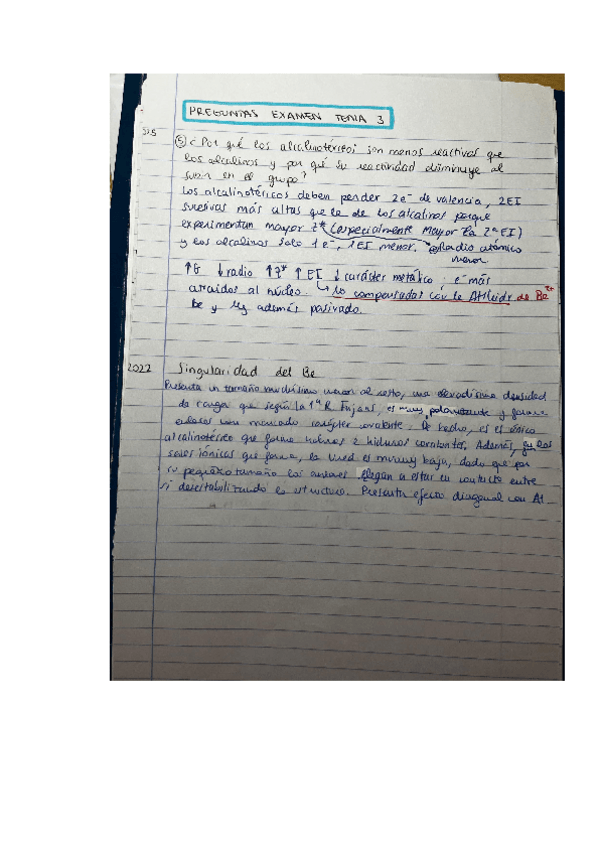 PREGUNTAS EXAMEN TEMA 3
5 ¿Por qué los alcalinotérreos son menos reactivos que
los alcalinos y por qué su reactividad disminuye al
subir en el grupo?
Los alcalinotéricos deben perder 2e- de valencia, 2EI
sucesivas más altas que la de los alcalinos porque
experimentan mayor Z* (especialmente mayor la 2ª EI)
y los alcalinos solo 1 e-, 1EI menor. Radio atómico
menor
↓radio ↑Z* ↑EI ↓carácter metálico: e- más
atraídos al núcleo. ↳ No compensadas con la AHhidr de Be2+
Be y Mg además pasivado.
2022 Singularidad del Be
Presenta un tamaño muchísimo menor al resto, una elevadísima densidad
de carga que según la 1ª R. Fajans, es muy polarizante y forma
enlaces con marcado carácter covalente. De hecho, es el único
alcalinotérreo que forma haluros e hidruros covalentes. Además, en las
sales iónicas que forma, la Ured es muy baja, dado que por
su pequeño tamaño los aniones llegan a estar en contacto entre
sí desestabilizando la estructura. Presenta efecto diagonal con Al